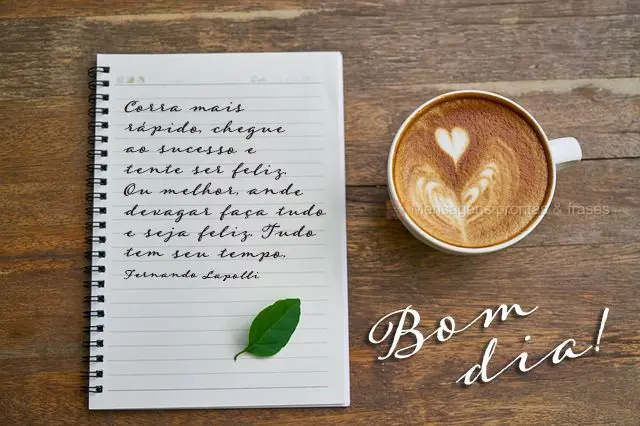 Corra mais
rápido, chegue
ao sucesso e
tente ser feliz.
Ou melhor, ande
devagar faça tudo
e seja feliz. Tudo
tem seu tempo.
Fernando Lapolli
Mensagens prontas & frases
Bom
dia!